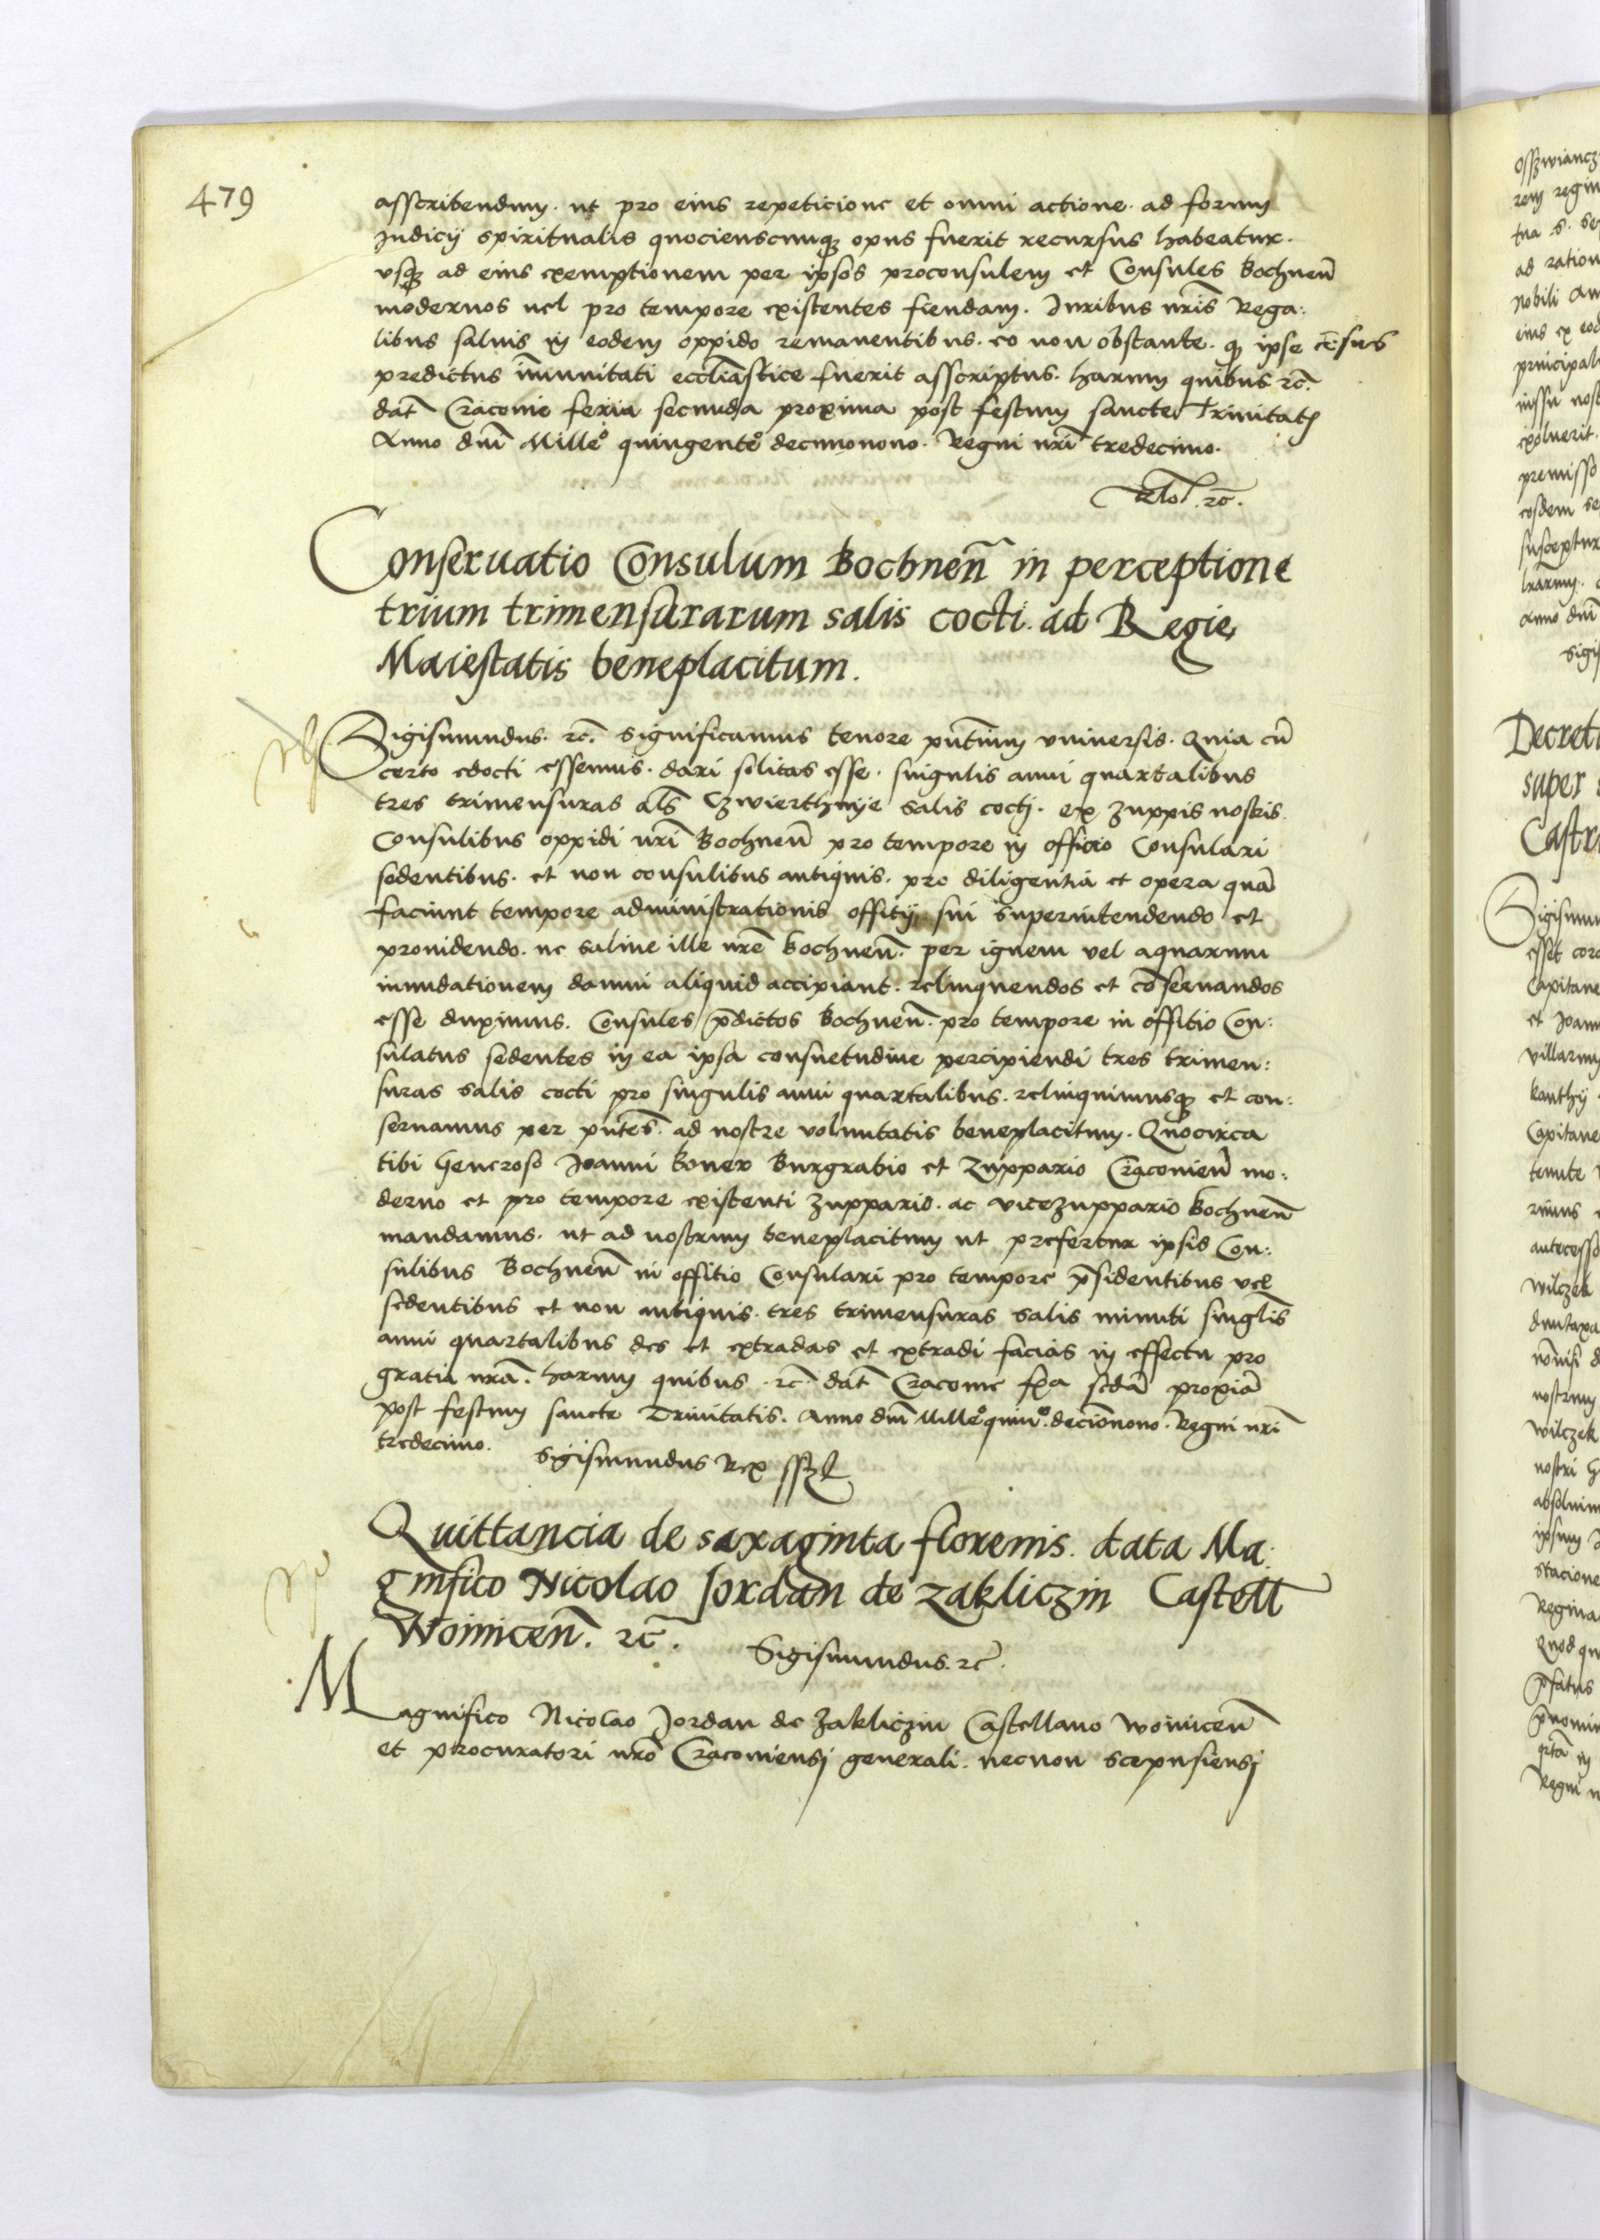 479
asscribendum. ut pro eius repeticione et omni actione. ad forum
Judicij spiritualis quocienscunqꝫ opus fuerit recursus habeatur.
vsqꝫ ad eius exemptionem per ipsos proconsulem et Consules Bochneñ
modernos uel pro tempore existentes fiendam. Juribus nr̃is Rega:
libus saluis in eodem oppido remanentibus. eo non obstante. qꝫ ipse cẽsus
predictus im̃unitati eccliãstice fuerit asscriptus. harum quibus ⁊c̃.
dat̃ Cracouie feria secunda proxima post festum sancte Trinitatꝭ
Anno dñi Milleº quingenteº decimonono. Regni nr̃i tredecimo.
Rlõ. ⁊c̃.
Conseruatio Consulum Bochneñ in perceptione
trium trimensurarum salis cocti. ad Regie
Maiestatis beneplacitum.
Sigismundus. ⁊c̃. Significamus tenore pñtium vniuersis. Quia cũ
certo edocti essemus. dari solitas esse. singulis anni quartalibus
tres trimensuras al̃s Czwierthnye salis coctj. ex zuppis nostris.
Consulibus oppidi nr̃i Bochneñ pro tempore in officio Consulari
sedentibus. et non consulibus antiquis. pro diligentia et opera quã
faciunt tempore administrationis offitij sui superintendendo et
prouidendo. ne saline ille nr̃e Bochneñ. per ignem vel aquarum
inundationem damni aliquid accipiant. relinquendos et cõseruandos
esse duximus. Consules p̃dictos Bochneñ. pro tempore in offitio Con:
sulatus sedentes in ea ipsa consuetudine percipiendi tres trimen:
suras salis cocti pro singulis anni quartalibus. relinquimusqꝫ et con:
seruamus per pñtes. ad nostre voluntatis beneplacitum. Quocirca
tibi Generoso Joanni Boner Burgrabio et Zuppario Cracouieñ mo:
derno et pro tempore existenti zuppario. ac vicezuppario Bochneñ
mandamus. ut ad nostrum beneplacitum ut prefertur ipsis Con:
sulibus Bochneñ in offitio Consulari pro tempore p̃sidentibus vel
sedentibus et non antiquis. tres trimensuras salis minuti singlis̃
anni quartalibus des et extradas et extradi facias in effectu pro
gratia nr̃a. harum quibus. ⁊c̃ dat̃ Cracouie fr̃a secdã proxiã
post festum sancte Trinitatis. Anno dñi Milleºquinº. deciõnono. Regni nr̃i
tredecimo.
Sigismundus Rex sszt
Quittancia de saxaginta florenis. data Ma:
gnifico Nicolao Jordan de Zakliczin Castell
Woinicen̄. ⁊c̃.
Sigismundus. ⁊c̃.
Magnifico Nicolao Jordan de Zakliczin Castellano Woiniceñ
et procuratori nr̃o Cracouiensj generali. necnon scepusiensj
Decret
super
Castr